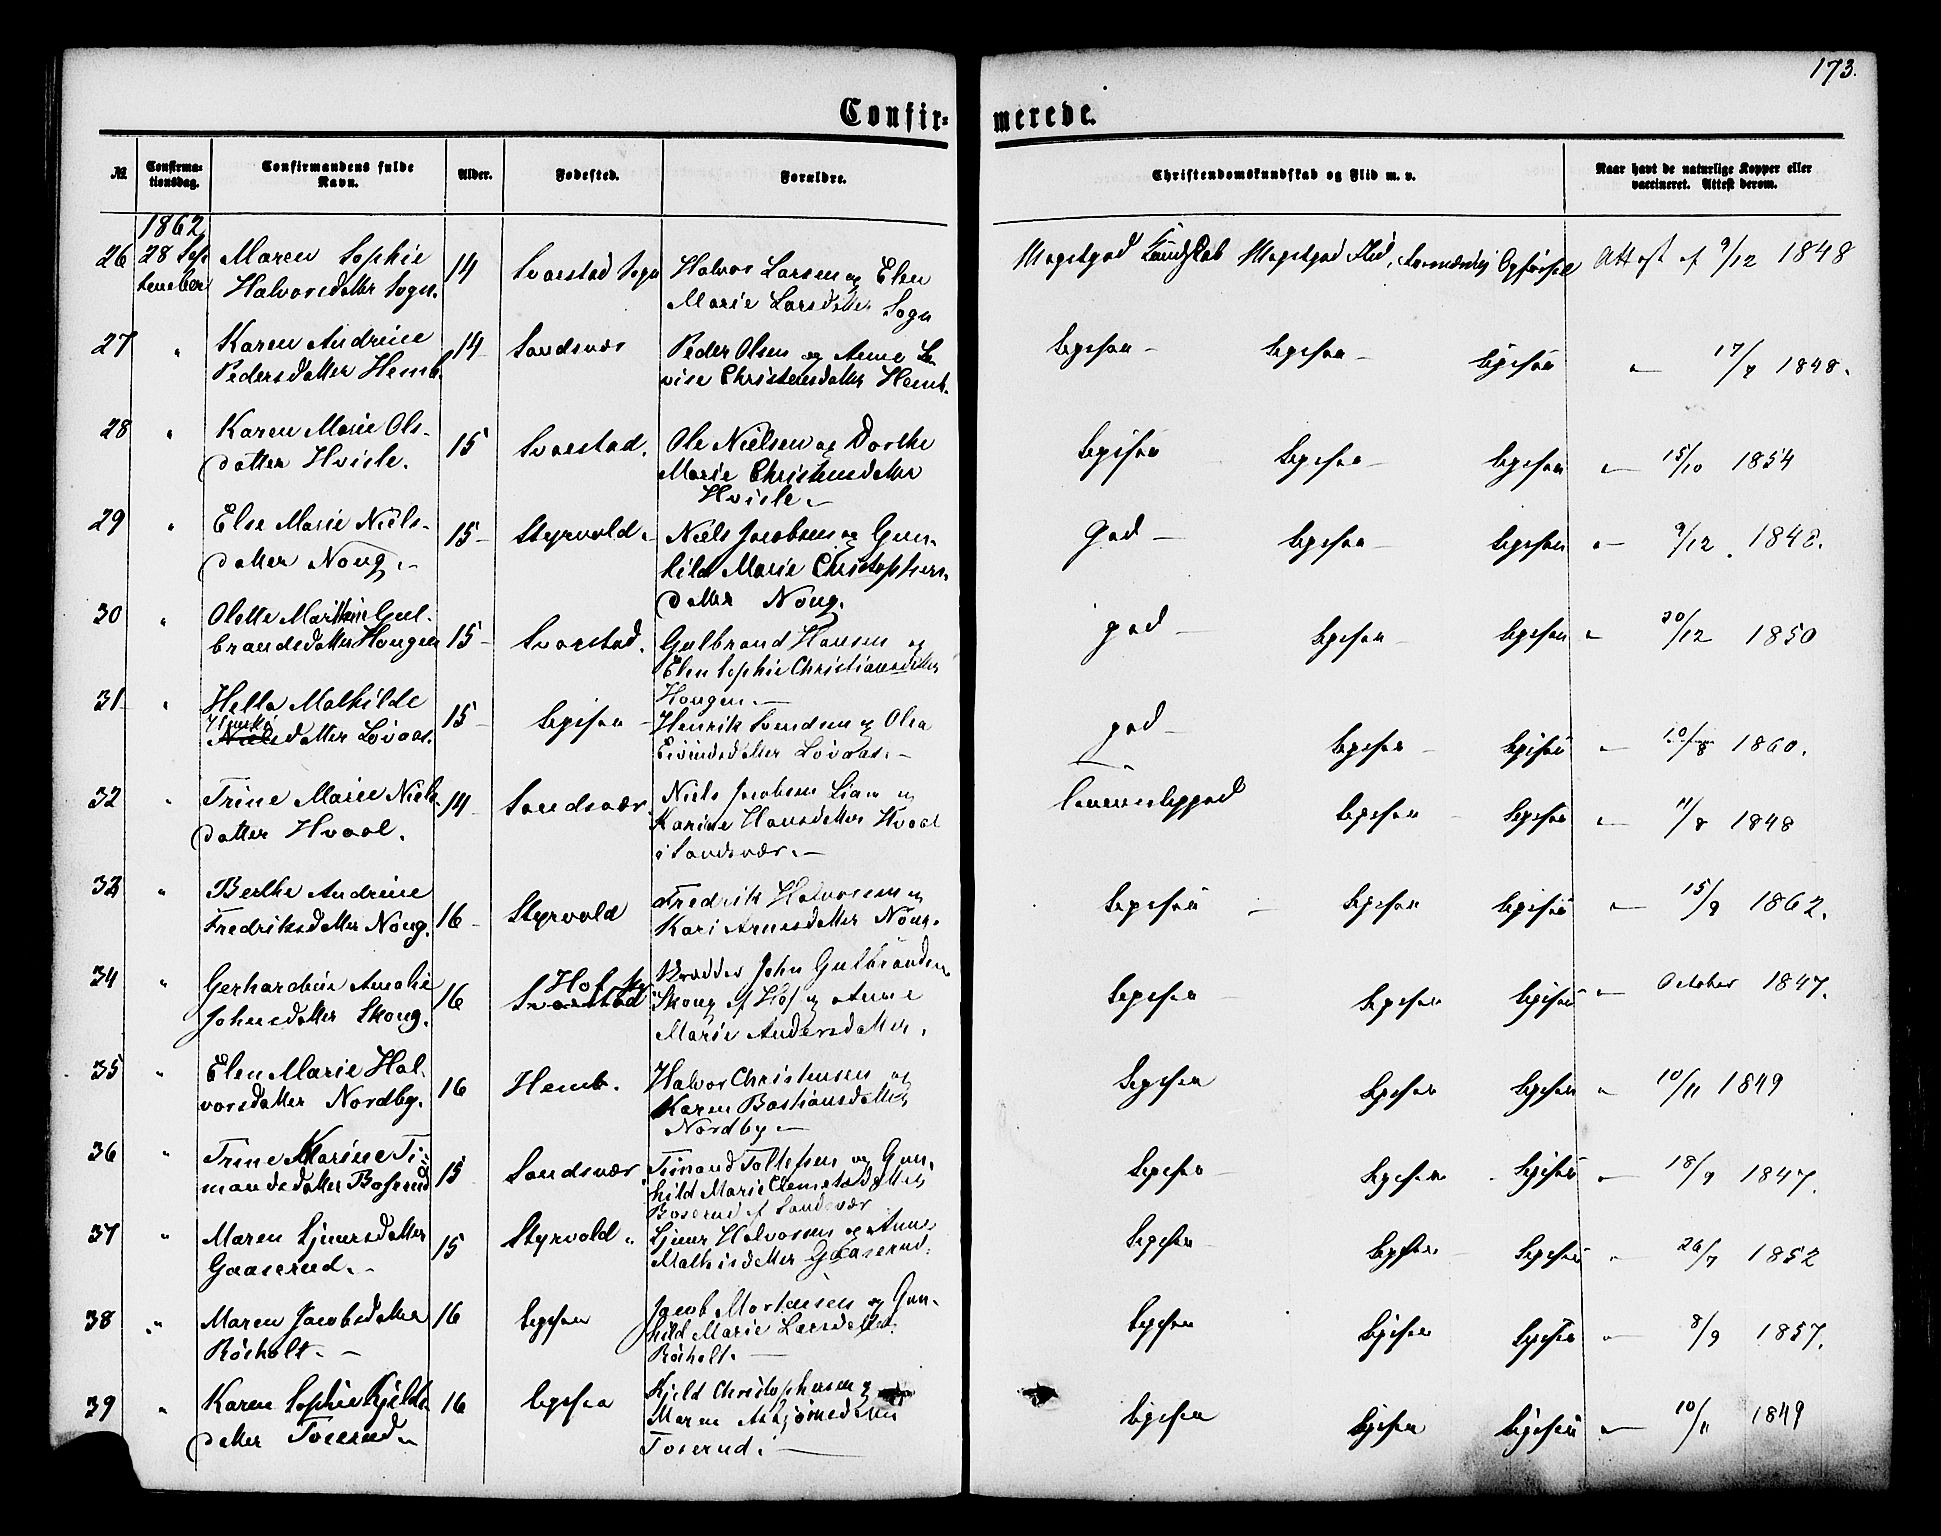 173.
Confirmerede.
No. Confirmationsdag. Confirmandens fulde Navn. Alder. Fødested. Forældre. Christendomskundskab og Flid m. v. Naar havt de naturlige Kopper eller vaccineret. Attest derom.
1862
26 28 September Maren Sophie Halvorsdatter Sogn. 14 Svarstad Sogn Halvor Larsen og Elen Marie Larsdatter Sogn Megetgod Kundskab Megetgod Flid, sømmelig Opførsel Attest af 9/12 1848
27 " Karen Andrine Pedersdatter Hemb. 14 Sandsvær Peder Olsen og Anne Lovise Christensdatter Hemb. ligesaa ligesaa ligesaa " 17/7 1848.
28 " Karen Marie Olsdatter Hvisle. 15 Svarstad. Ole Nielsen og Dorthe Marie Christensdatter Hvisle. ligesaa ligesaa ligesaa " 15/10 1854
29 " Else Marie Nielsdatter Noug. 15 Styrvold. Niels Jacobsen og Gunhild Marie Christophersdatter Noug. God ligesaa ligesaa " 9/12 1848.
30 " Olette Marthine Gulbrandsdatter Hougen 15 Svarstad. Gulbrand Hansen og Elen Sophie Christiansdatter Hougen. god ligesaa ligesaa " 20/12 1850
31 " Hella Mathilde Nielsdatter Løvaas. 15 ligesaa Henrik Svendsen og Olea Eivindsdatter Løvaas. god ligesaa ligesaa " 10/8 1860.
32 " Trine Marie Nielsdatter Hvaal. 14 Sandsvær. Niels Jacobsen Lian og Karine Hansdatter Hvaal i Sandsvær. Temmeliggod ligesaa ligesaa " 11/8 1848
33 " Berthe Andrine Fredriksdatter Noug. 16 Styrvold Fredrik Halvorsen og Kari Arnesdatter Noug. ligesaa ligesaa ligesaa " 15/9 1862.
34 " Gerhardine Amalie Johnsdatter Skoug. 16 Hof Svarstad John Gulbrandsen Skoug af Hof og Anne Marie Andersdatter. ligesaa ligesaa ligesaa " October 1847.
35 " Elen Marie Halvorsdatter Nordby. 16 Hemb. Halvor Christensen og Karen Bastiansdatter Nordby ligesaa ligesaa ligesaa " 10/11 1849
36 " Trine Karine Timandsdatter Boserud 15 Sandsvær Timand Tollefsen og Gunhild Marie Clemetsdatter Boserud af Sandsvær ligesaa ligesaa ligesaa " 18/9 1847.
37 " Maren Sjuursdatter Gaaserud. 15 Styrvold. Sjuur Halvorsen og Anne Mathisdatter Gaaserud. ligesaa ligesaa ligesaa " 26/7 1852
38 " Maren Jacobsdatter Røsholt. 16 ligesaa Jacob Mortensen og Gunhild Marie Larsdatter Røsholt. ligesaa ligesaa ligesaa " 8/9 1857.
39 " Karen Sophie Kjeldsdatter Toserud. 16 ligesaa Kjeld Christophersen og Maren Asbjørnsdatter Toserud. ligesaa ligesaa ligesaa " 10/11 1849